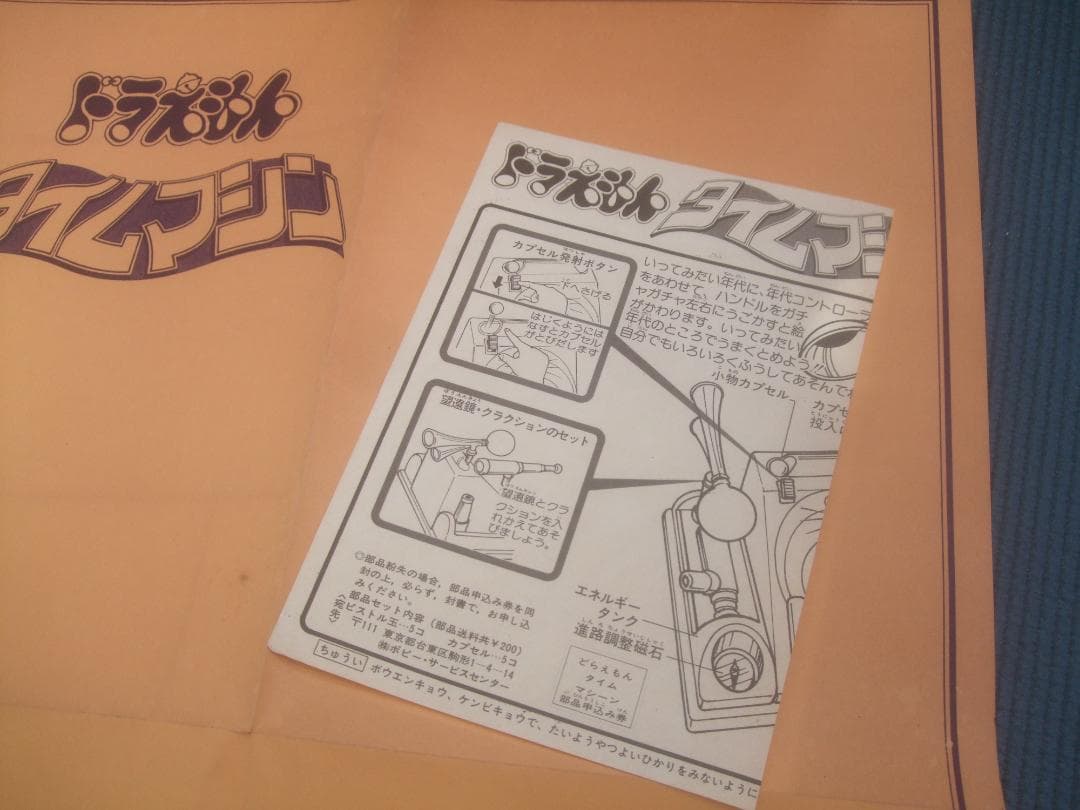 ドラえもん
タイムマシン
ドラえもん
タイムマシ
カプセル発射ボタン
下へさげる
はじくようには
なすとカプセル
がとびだします
いってみたい年代に、年代コントローラ
をあわせて、ハンドルをガチ
ャガチャ左右にうごかすと絵
がかわります。いってみたい
年代のところでうまくとめよう!!
自分でもいろいろくふうしてあそんでね
小物カプセル
カプセ
投入口
望遠鏡・クラクションのセット
望遠鏡とクラ
クションを入
れかえてあそ
びましょう。
エネルギー
タンク
進路調整磁石
◎部品紛失の場合，部品申込み券を同
封の上，必らず，封書で，お申し込
みください。
部品セット内容（部品送料共￥200）
ピストル玉…5コ カプセル…5コ
宛先
〒111 東京都台東区駒形1-4-14
㈱ポピー・サービスセンター
どらえもん
タイム
マシーン
部品申込み券
ちゅうい ボウエンキョウ、ケンビキョウで、たいようやつよいひかりをみないように